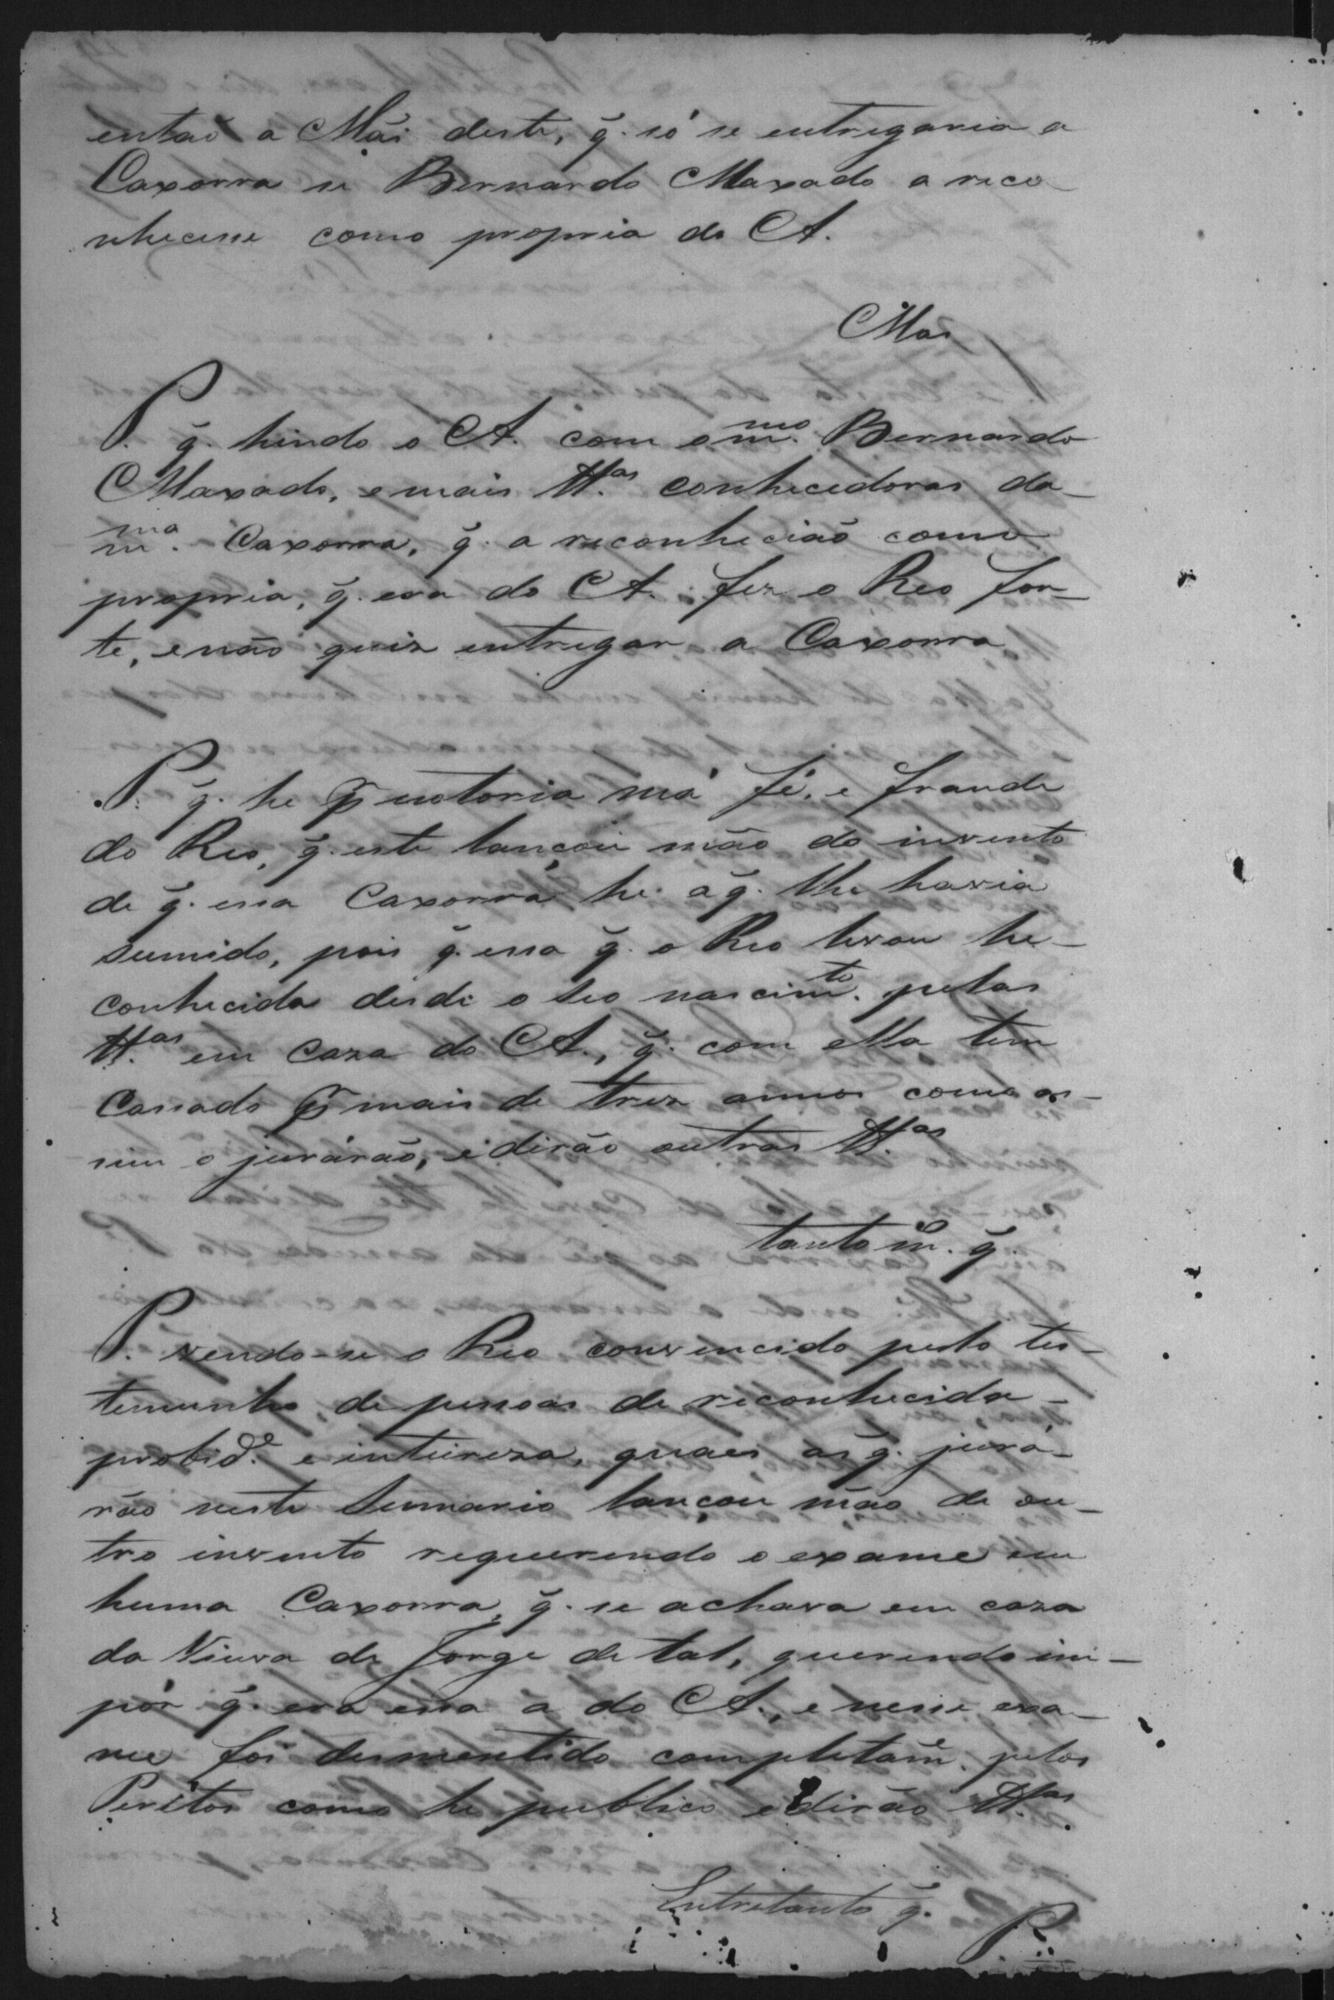 então a Mãi deste, q̃. só se entregaria a
Caxorra se Bernardo Maxado a reco-
nhecesse como propria do A.
Mas
P. q̃. hindo o A. com o m.mo Bernardo
Maxado, e mais tt.as conhecedoras da
m.ma Caxorra, q̃. a reconhecião como
propria, q̃. era do A. fez o Reo for-
te, e não quiz entregar a Caxorra
P. q̃. he p notoria má fé, e fraude
do Reo, q̃. este lançou mão do invento
de q̃. essa Caxorra he a q̃. lhe havia
sumido, pois q̃. essa q̃. o Reo levou he
conhecida desde o seo nascim.to pelas
tt.as em caza do A., q̃. com ella tem
Cassado p mais de trez annos como as-
sim o jurárão, e dirão outras tt.as
tanto m̃. q̃.
P. vendo-se o Reo convencido pelo tes-
temunho de pessoas de reconhecida
probid.e e inteireza, quaes as q̃. jurá-
rão neste Summario lançou mão de ou-
tro invento requerendo o exame em
huma Caxorra, q̃. se achava em caza
da Viuva de Jorge de tal, querendo im-
pôr q̃. era essa a do A., e nesse exa-
me foi desmentido completam.e pelos
Peritos como he publico e dirão tt.as
Entretanto q̃.
P.